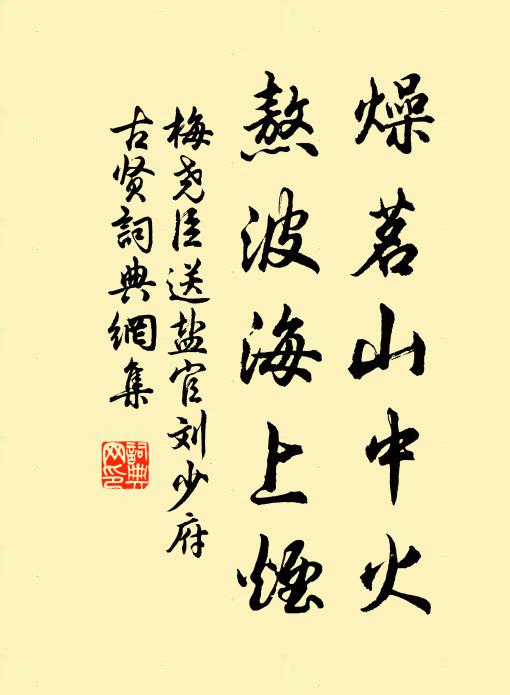 燥茗山中火
熬波海上煙
梅尧臣送盐官刘少府
古贤詞典網集
詞典
网印